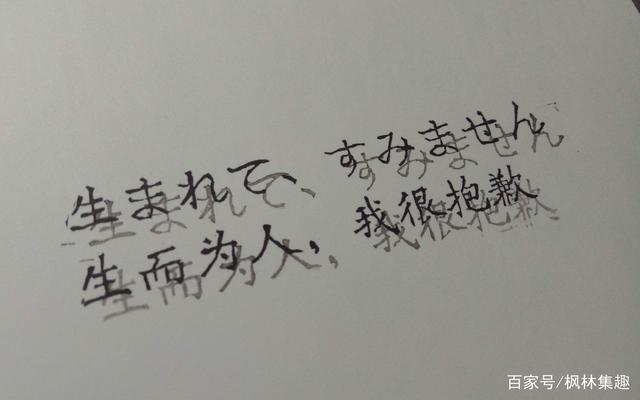 生まれて、すみません
生而为人，我很抱歉
百家号/枫林集趣